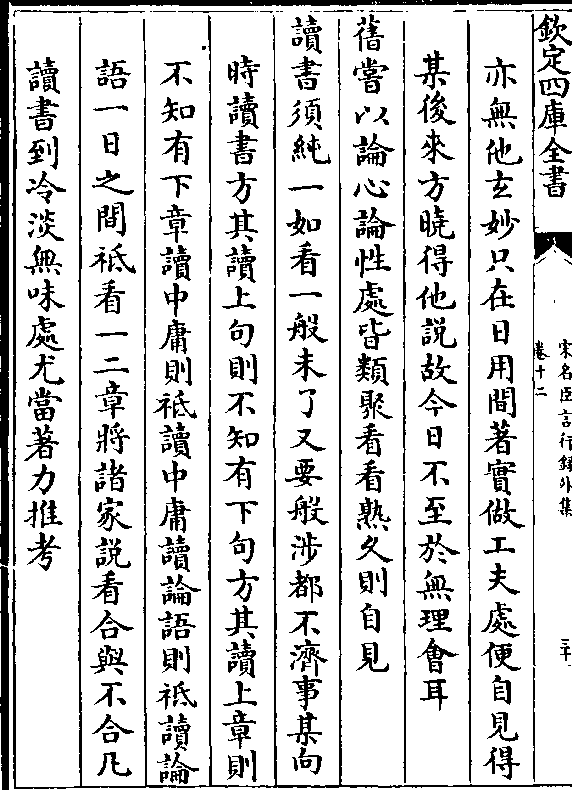 欽定四庫全書
宋名臣言行録外集
卷十二
亦無他玄妙只在日用間著實做工夫處便自見得
某後來方曉得他説故今日不至於無理㑹耳
舊嘗以論心論性處皆類聚看看熟久則自見
讀書須純一如看一般未了又要般涉都不濟事某向
時讀書方其讀上句則不知有下句方其讀上章則
不知有下章讀中庸則祗讀中庸讀論語則祗讀論
語一日之間祗看一二章將諸家説看合與不合凡
讀書到冷淡無味處尤當著力推考